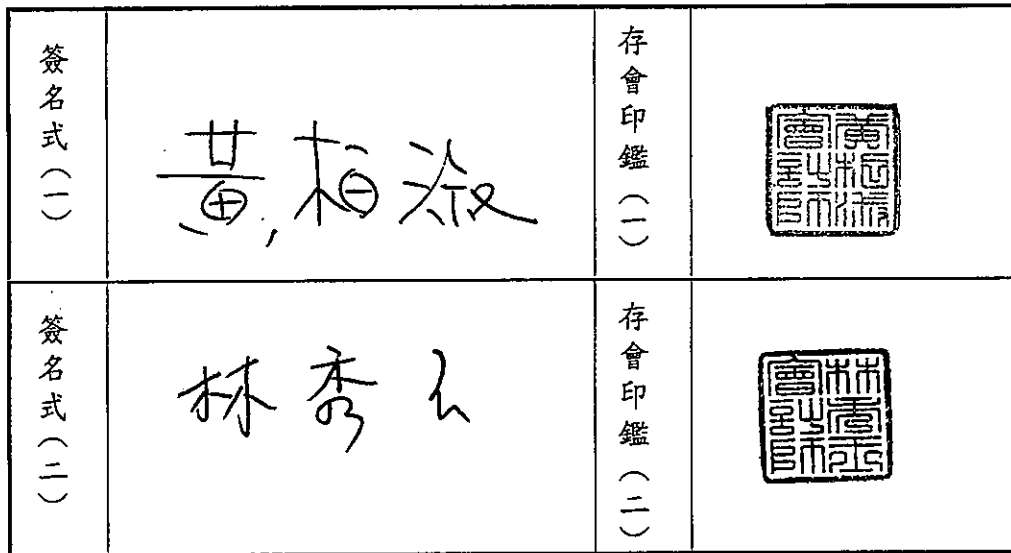 簽名式(一)
黃柏淑
存會印鑑(一)
黃柏淑
會計師
簽名式(二)
林秀玉
存會印鑑(二)
林秀玉
會計師